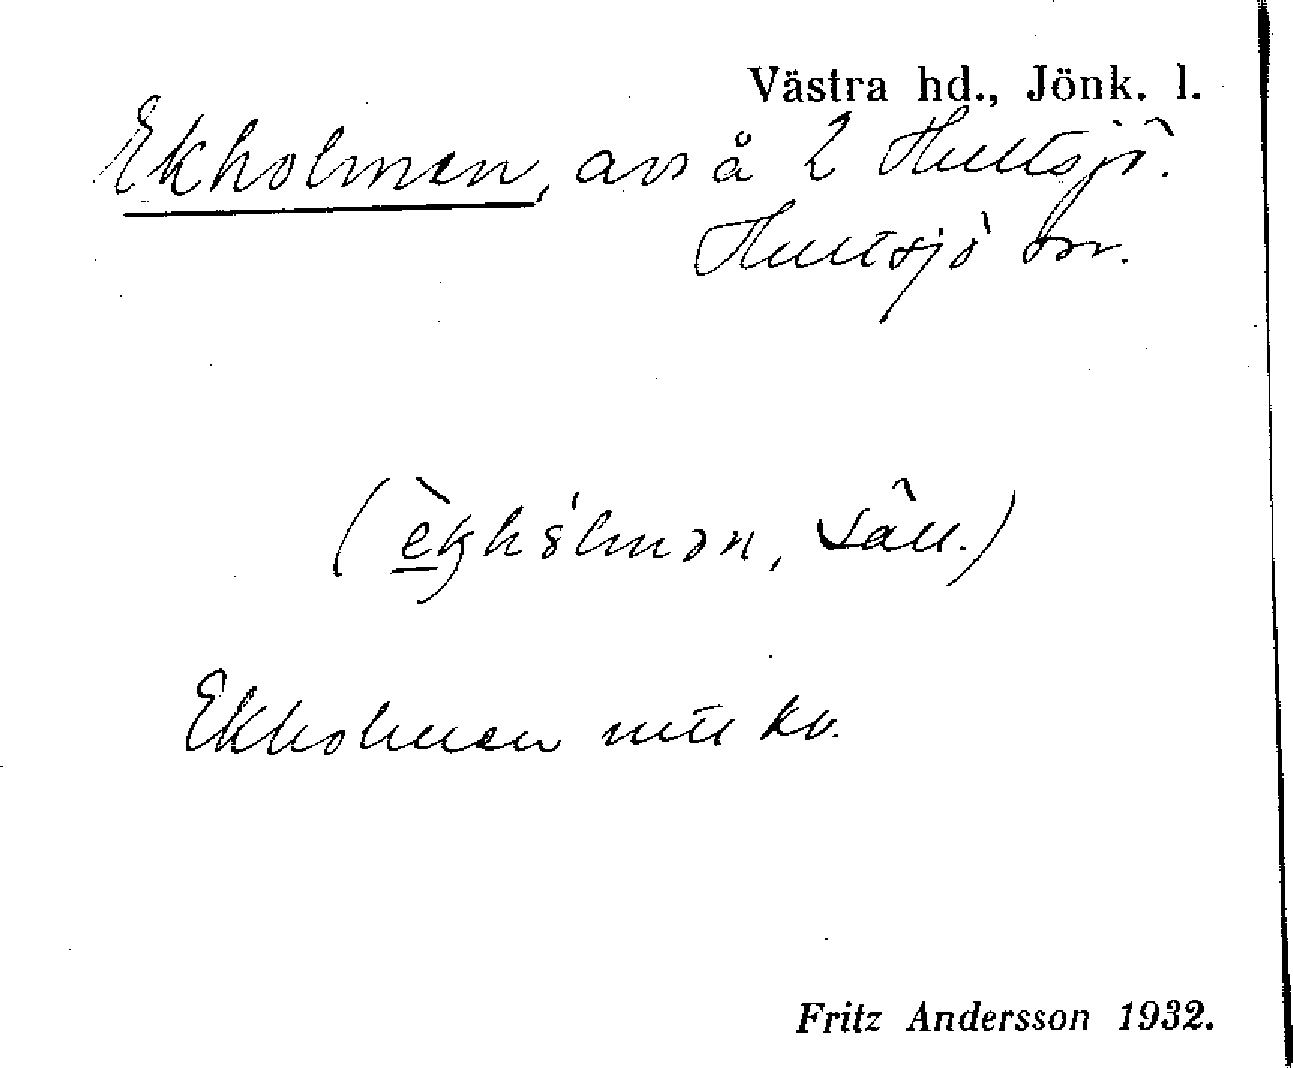 Västra hd., Jönk. l.
Ekholmen, avs å 2 Hultsjö.
Hultsjö sn.
(èkhólmən, säll.)
Ekholmen mtll kv.
Fritz Andersson 1932.